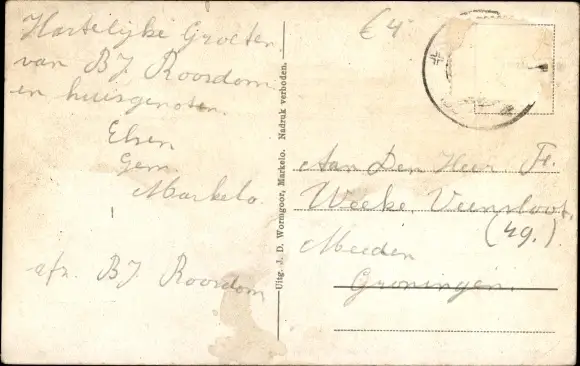 Hartelijke Groeten
van BJ Roosdom
en huisgenoten.
Elsen
Gem.
Markelo.
afz. BJ Roosdom
Uitg. J. D. Wormgoor, Markelo. Nadruk verboden.
€4
Aan Den Heer Fr.
Weeke, Veensloot,
(49.)
Meeden
Groningen.